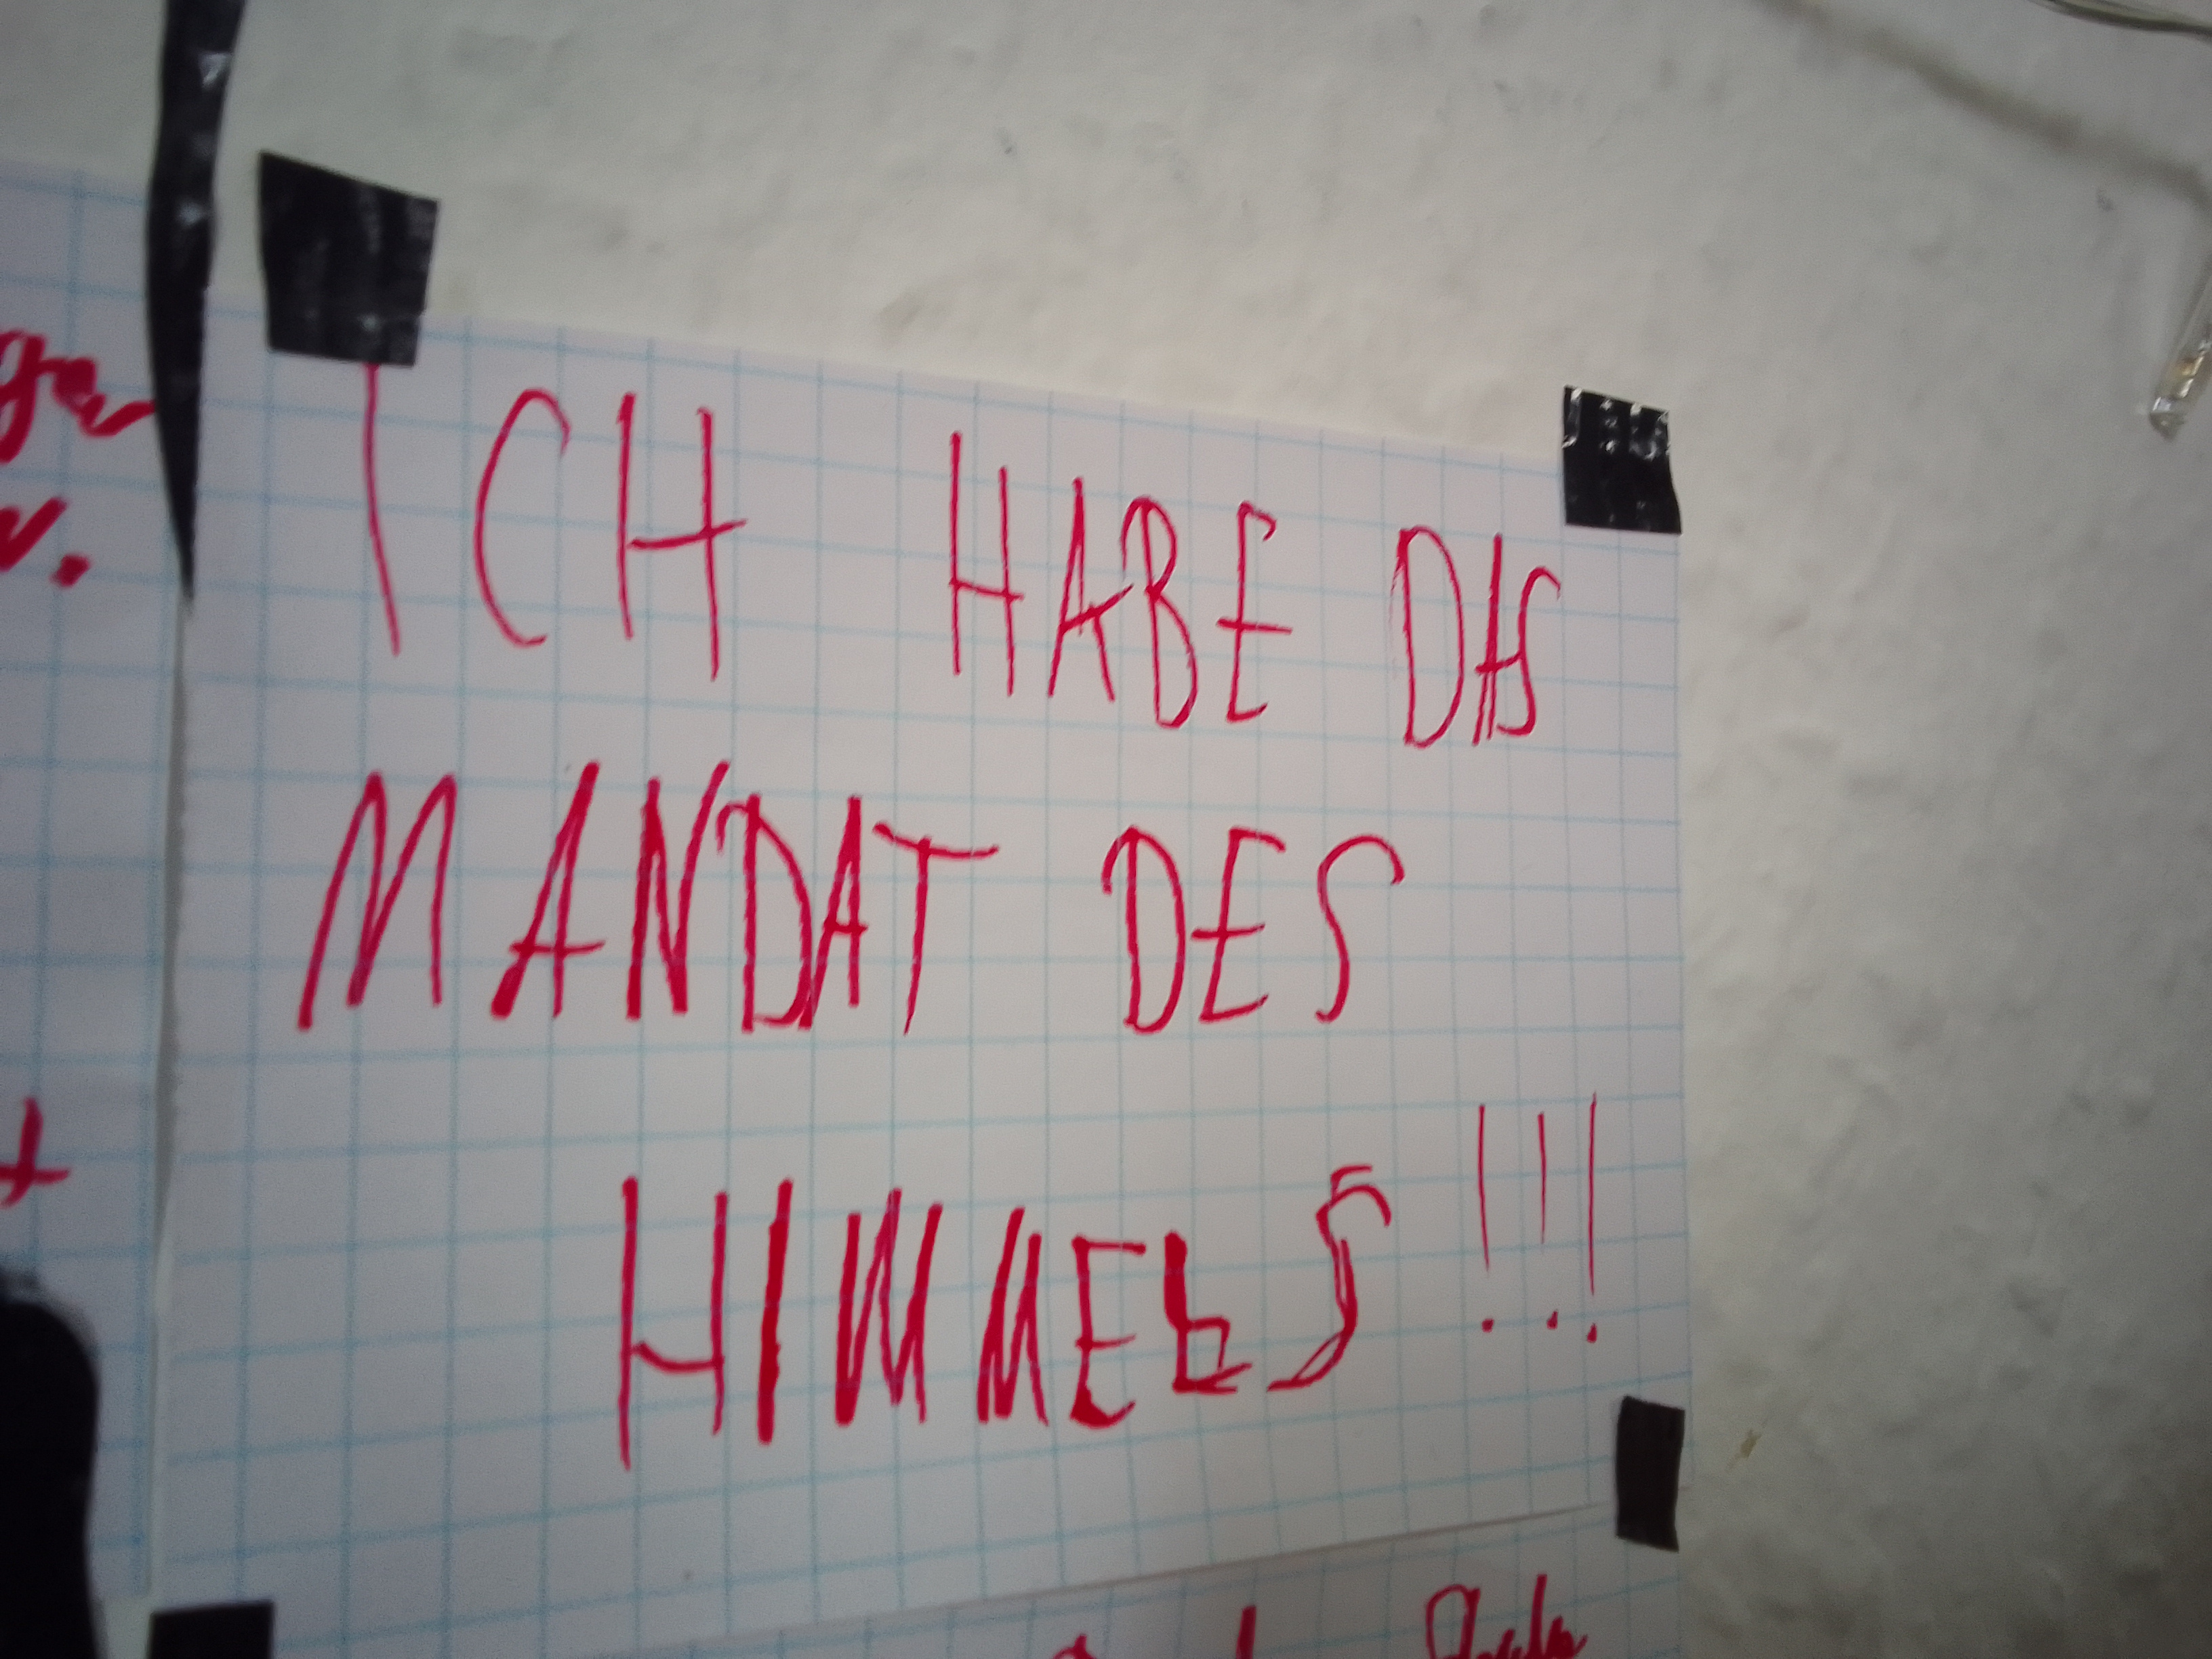 ICH HABE DAS
MANDAT DES
HIMMELS!!!